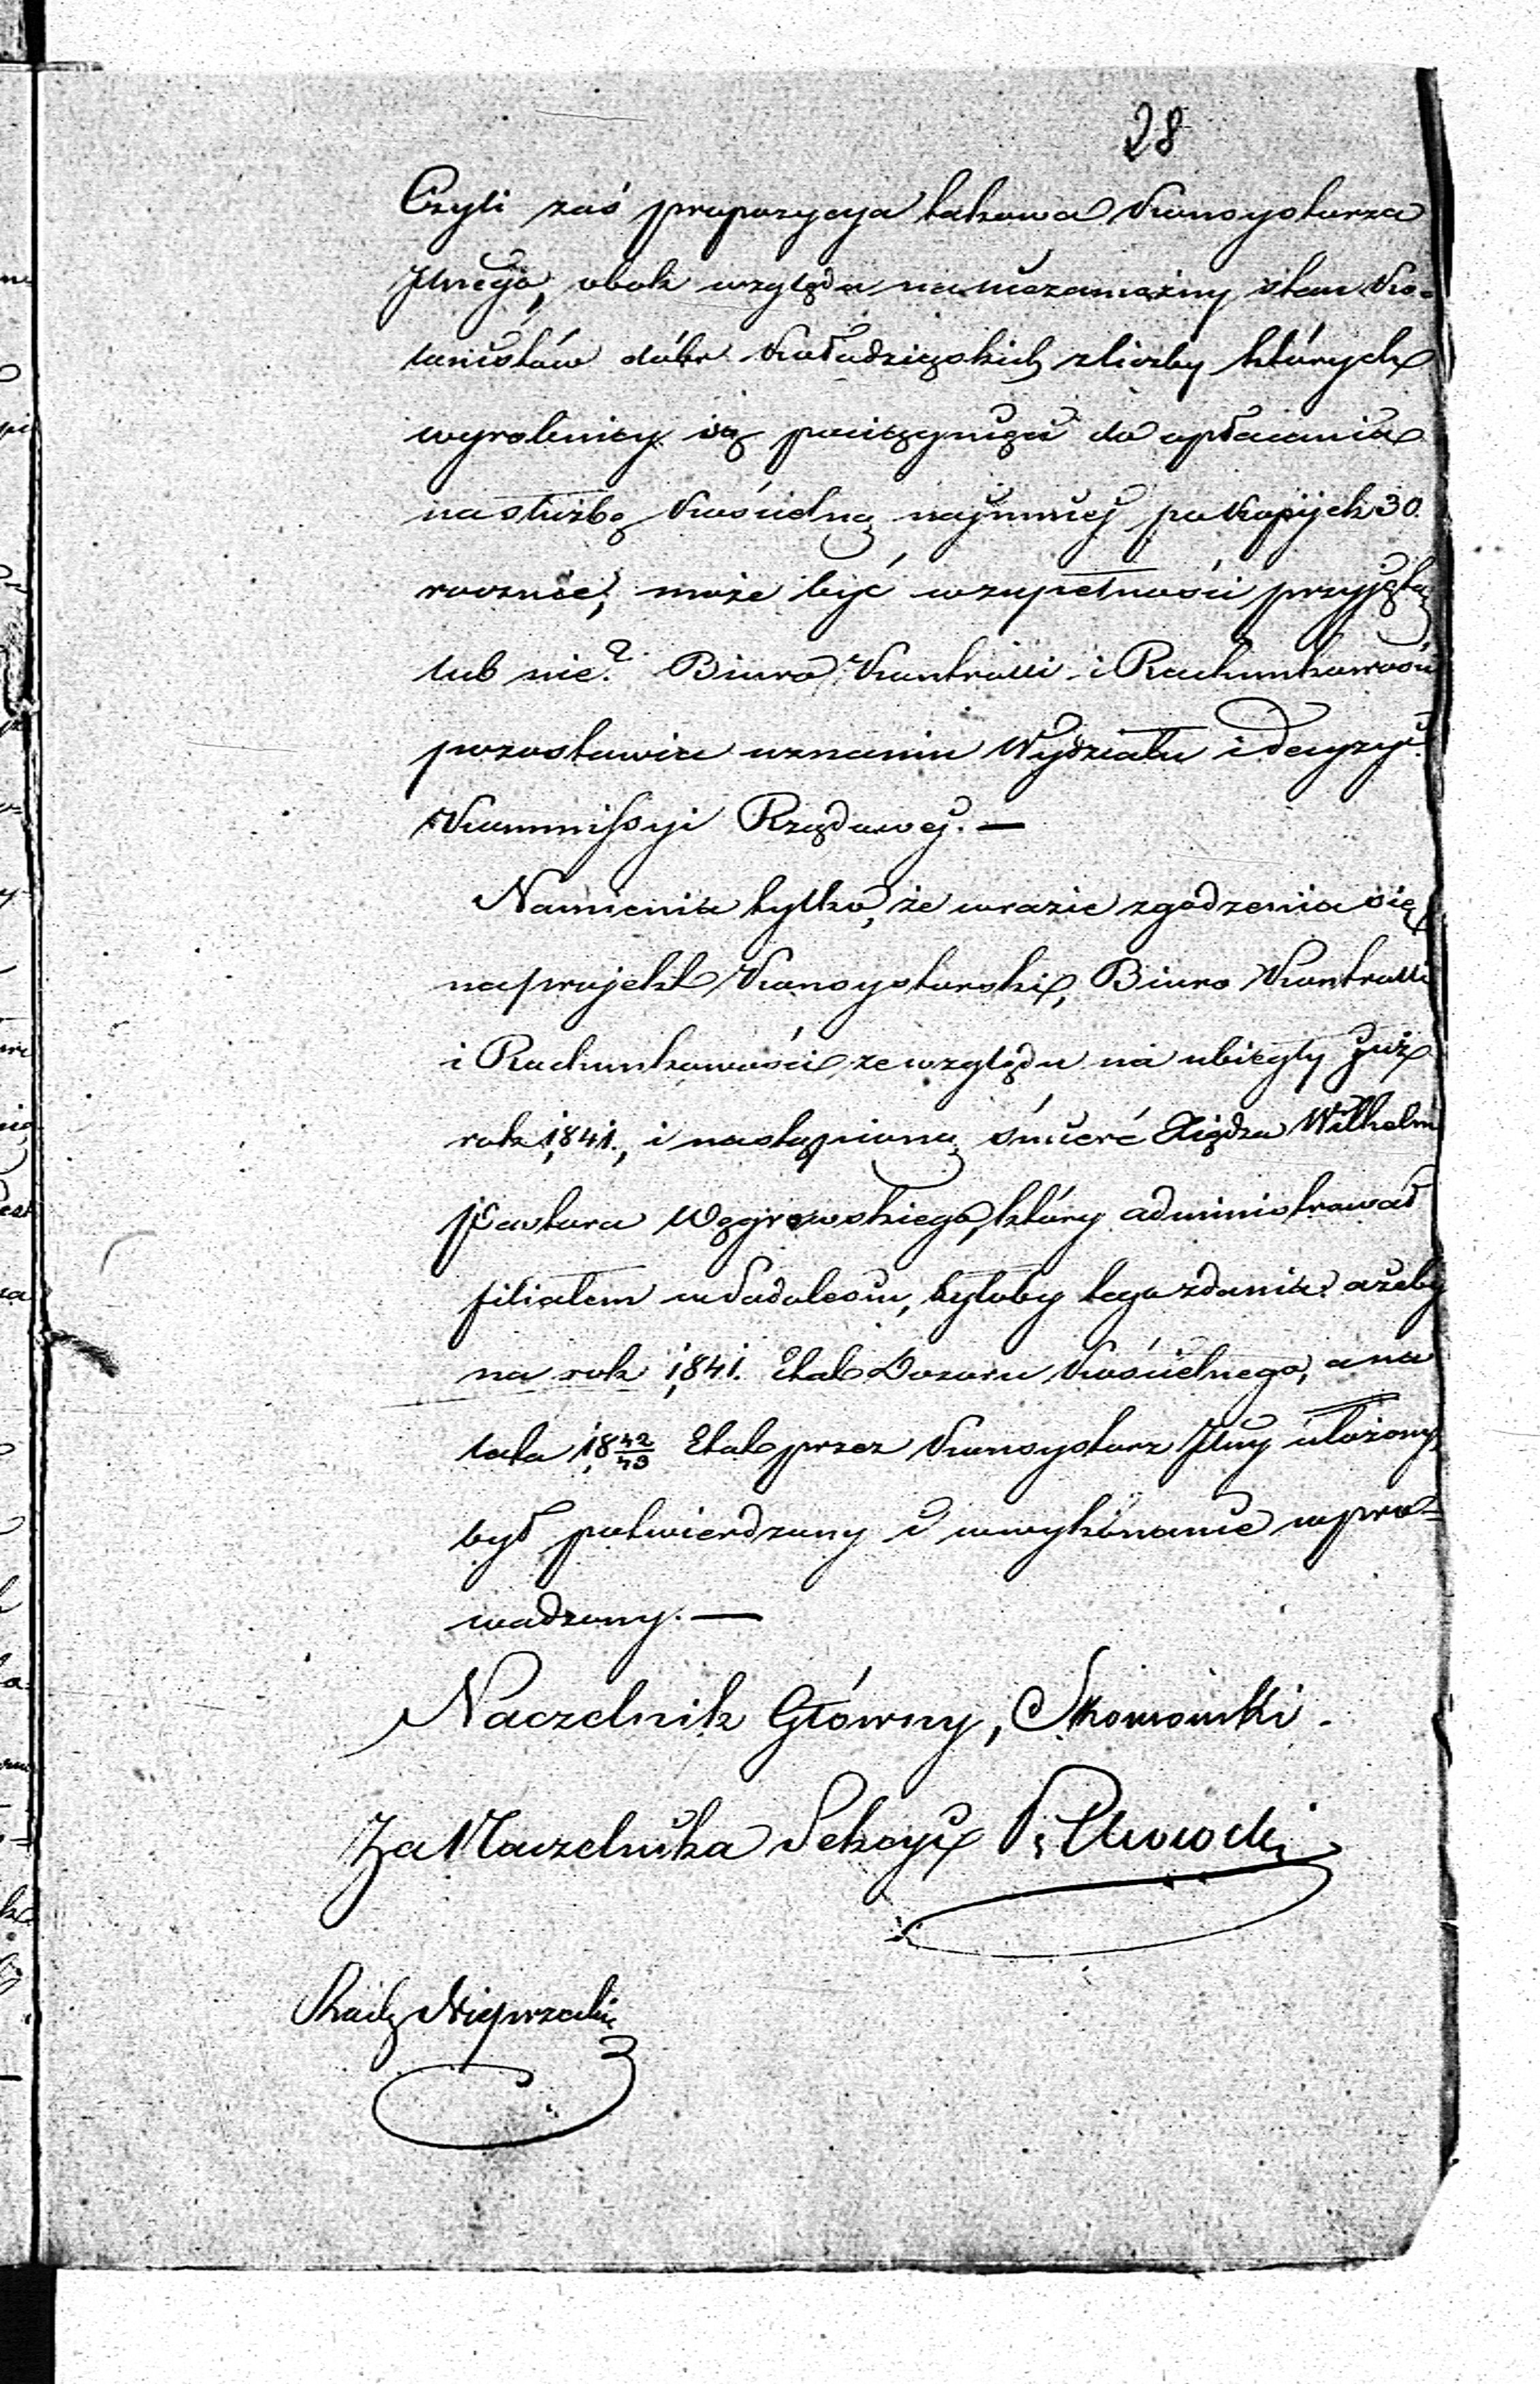 28
Czyli zaś propozycya takowa Konsystorza
Jlnego, obok względu na niezamożny stan Ko-
lonistów dóbr Kołodziąskich z liczby których
wyrobnicy są pociągnięci do opłacania
na służbę Kościelną najmniej po Kopijek 30.
rocznie, może być w zupełności przyjętą
lub nie? Biuro Kontrolli i Rachunkowości
pozostawia uznaniu Wydziału i decyzyi
Kommissyi Rządowej. —
Namienia tylko, że w razie zgodzenia się
na projekt Konsystorski, Biuro Kontrolli
i Rachunkowości ze względu na ubiegły już
rok 1841., i nastąpioną śmierć Xiędza Wilhelm
Pastora Węgrowskiego, który administrował
filiałem w Sadolesiu, byłoby tego zdania: ażeby
na rok 1841. Etat Dozoru Kościelnego, a na
lata 1842/43 Etat przez Konsystorz Jlny ułożony,
był potwierdzony i w wykonanie wpro=
wadzony. —
Naczelnik Główny,
Za Naczelnika Sekcyi